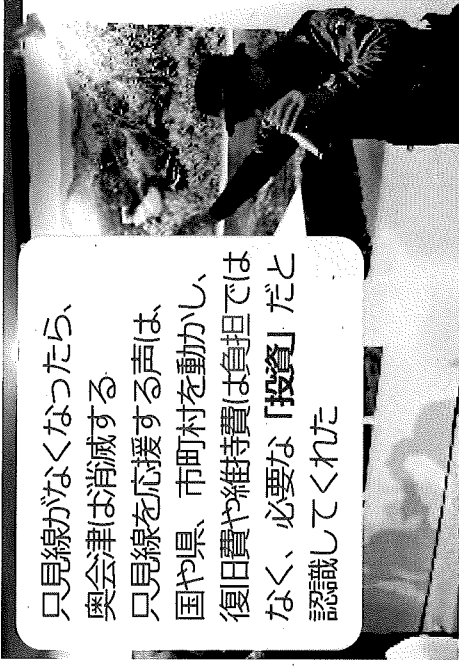 只見線がなくなったら、
奥会津は消滅する
只見線を応援する声は、
国や県、市町村を動かし、
復旧費や維持費は負担では
なく、必要な「投資」だと
認識してくれた